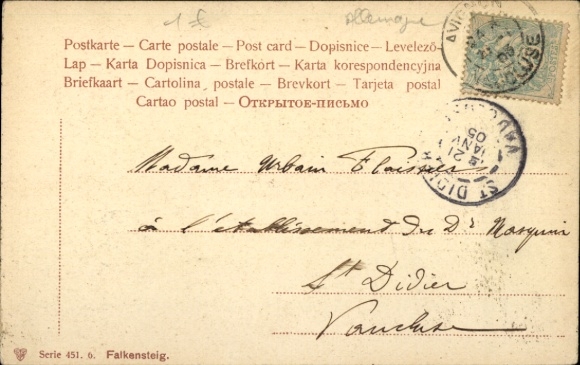 1 €
allemagne
Postkarte – Carte postale – Post card – Dopisnice – Levelező-
Lap – Karta Dopisnica – Brefkórt – Karta korespondencyjna
Briefkaart – Cartolina postale – Brevkort – Tarjeta postal
Cartao postal – Открытое-письмо
AVIGNON
VAUCLUSE
ST DIDIER
21 JANV 05
Madame Urbain
à l'établissement du Dr Masquin
St Didier
Vaucluse
Serie 451. 6. Falkensteig.